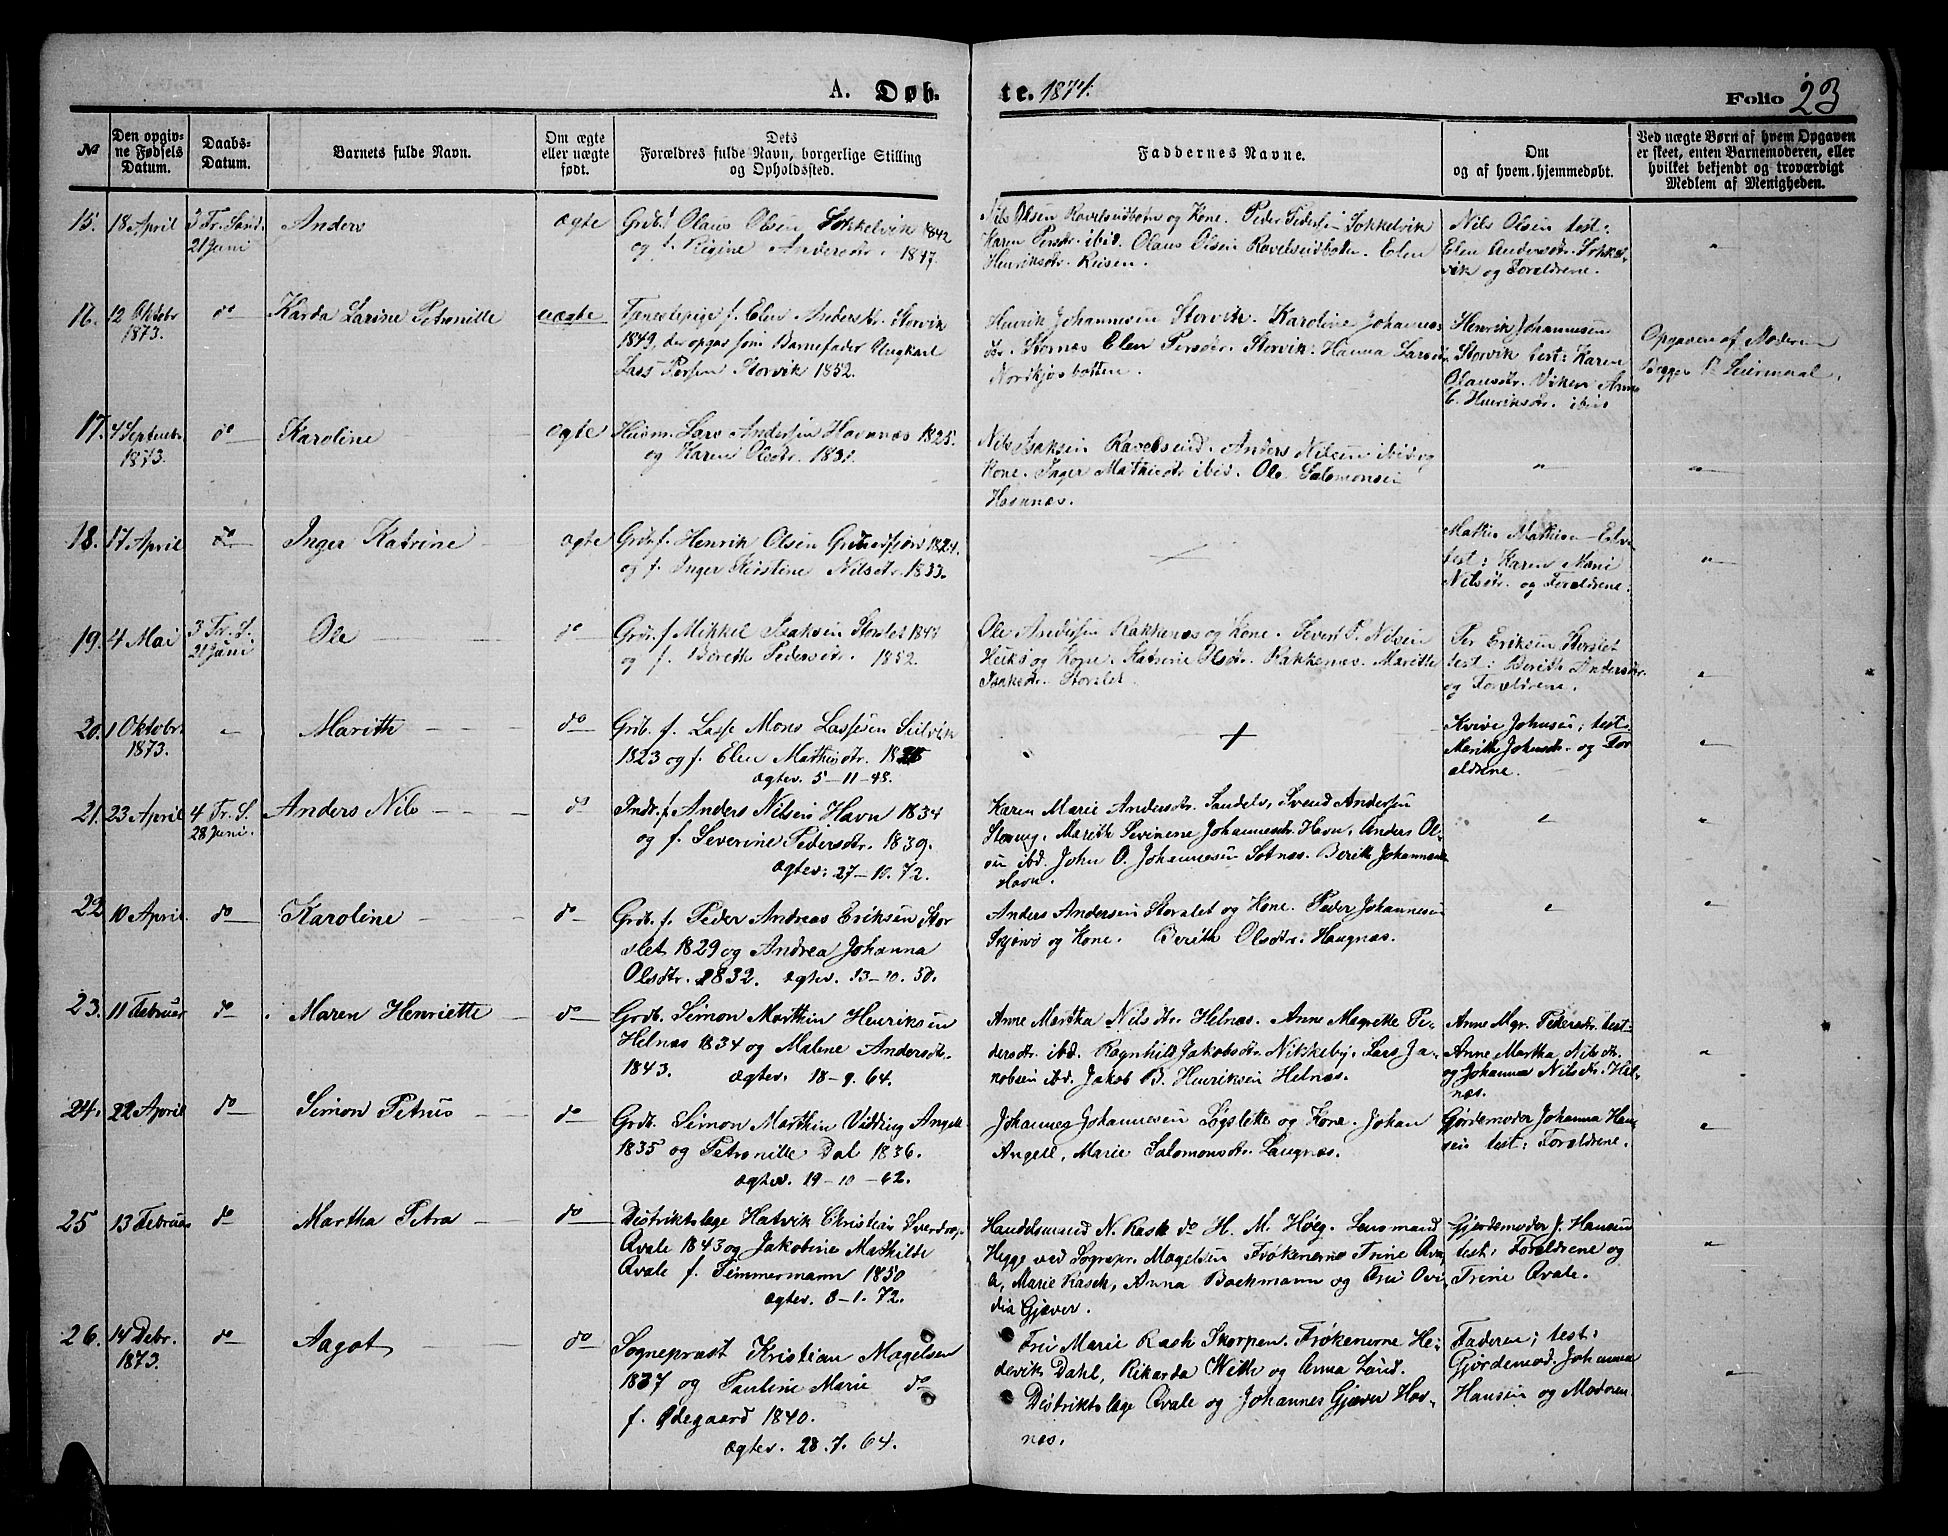 A. Døb- te. 1874. Folio 23
No
Den opgivne Fødsels Datum.
Daabs-Datum.
Barnets fulde Navn.
Om ægte eller uægte født.
Dets Forældres fulde Navn, borgerlige Stilling og Opholdssted.
Faddernes Navne.
Om og af hvem hjemmedøbt.
Ved uægte Børn af hvem Opgaven er skeet, enten Barnemoderen, eller hvilket bekjendt og troværdigt Medlem af Menigheden.
15. 18 April 3 Tr. Sønd. 21 Juni Anders ægte
Grdb. Olaus Olsen Sokkelvik 1842
og f. Regine Andersdtr. 1847.
Nils Olsen Ravelseidbotn og Kone. Peder Pedersen Sokkelvik
Karen Persdtr. ibid. Olaus Olsen Ravelseidbotten. Elen
Henriksdtr. Reisen.
Nils Olsen test:
Elen Andersdtr. Sokkel-
vik og Forældrene.
16. 12 Oktobr 1873. do Karda Larine Petronille uægte
Tjenestepige f. Elen Andersdtr. Storvik
1849, der opgav som Barnefader Ungkarl
Lars Persen Storvik 1852.
Henrik Johannesen Storvik. Karoline Johannes-
dtr. Stornæs Elen Persdtr. Storvik. Hanna Larsdtr
Nordkjosbotten.
Henrik Johannesen
Storvik test: Karen
Olausdtr. Viken Anne
C. Henriksdtr. ibid
Opgaven af Moderen
Begges 1ste Leiermaal.
17. 4 Septembr 1873. do Karoline ægte
Huusm. Lars Andersen Havnnæs 1825.
og Karen Olsdtr. 1831.
Nils Isaksen Ravelseid. Anders Nilsen ibid og
Kone. Inger Mathisdtr ibid. Ole Salomonsen
Havnnæs.
18. 17 April do Inger Katrine ægte
Grdb. f. Henrik Olsen 1824.
og f. Inger Kirstine Nilsdtr. 1833.
Mathis Mathisen
test: Karen Marie
Nilsdtr. og Forældrene.
19. 4 Mai 3 Tr. S. 21 Juni Ole do
Grdb. f. Mikkel Isaksen Storslet 1848
og f. Berith Pedersdtr. 1852.
Ole Andersen Rakkenæs og Kone. Severt P. Nilsen
Heiks og Kone. Katrine Olsdtr. Rakkenæs. Marithe
Isaksdtr. Storslet.
Per Eriksen Storslet
test: Berith Andersdtr.
og Forældrene.
20. 1 Oktobr. 1873. Marith do
Grdb. f. Lasse Mons Lassesen Seilvik
1823 og f. Elen Mathisdtr.
ægtev. 5-11-48.
Kvive Johnsen; test.
Marith Johnsdtr. og For-
ældrene.
21. 23 April 4 Tr. S. 28 Juni. Anders Nils do
Indr. f. Anders Nilsen Havn 1834
og f. Severine Pedersdtr. 1839.
ægtev: 27-10. 72.
Karen Marie Andersdtr. Svend Andersen
Marith Severine Johannesdtr. Havn. Anders Ol-
sen ibd. John O. Johannesen Sotnæs. Berith Johannesdtr
Havn.
22 10 April do Karoline do
Grdb. f. Peder Andreas Eriksen Stor-
slet 1829 og Andrea Johanna
Olsdtr. 1832. ægtev. 13-10. 50.
Anders Andersen Storslet og Kone. Peder Johannesen
Skjervø og Kone. Berith Olsdtr. Haugnæs.
23. 11 Februar do Maren Henriette do
Grdb. Simon Marthin Henriksen
Helnæs 1834 og Malene Andersdtr.
1843. ægtev. 18-9. 64.
Anne Martha Nilsdtr. Helnæs. Anne Magrethe Pe-
dersdtr. ibd. Ragnhild Jakobsdtr. Nikkeby. Lars Ja-
kobsen ibd. Jakob B. Henriksen Helnæs.
Anne Mgr. Pedersdtr. test:
Anne Martha Nilsdtr.
og Johanna Nilsdtr. Hel-
næs.
24. 22 April do Simon Petrus do
Grdb. Simon Marthin Vidding Angell
1835 og Petronille Dal 1836.
ægtev. 19-10-62.
Johannes Johannesen Løgslette og Kone. Johan
Angell, Marie Salomonsdtr. Laugnæs.
Gjordemoder Johanna Han-
sen test: Forældrene.
25 13 Februar do Martha Petra do
Distriktslæge Hatvik Christian Sverdrup
Qvale 1843 og Jakobine Mathilde
Qvale f. Timmermann 1850
ægtev. 8-1. 72.
Handelsmand N. Rask do H. M. Høeg. Lensmand
Hegge ved Sognepr. Magelsen Frøkenerne Trine Qva-
le, Marie Rasch, Anna Backmann og Fru Ovi-
dia Gjæver.
Gjordemoder J. Hansen
test: Forældrene og
Trine Qvale.
26. 14 Debr. 1873. do Aagot do
Sognepræst Kristian Magelsen
1837 og Pauline Marie do
f. Ødegaard 1840.
ægtev. 28.7. 64.
Fru Marie Rask Skorpen. Frøkenerne He-
devik Dahl, Rikarda With og Anna Lund.
Distriktslæge Qvale og Johannes Gjæver Hav-
næs.
Faderen; test:
Gjordemod. Johanna
Hansen og Moderen